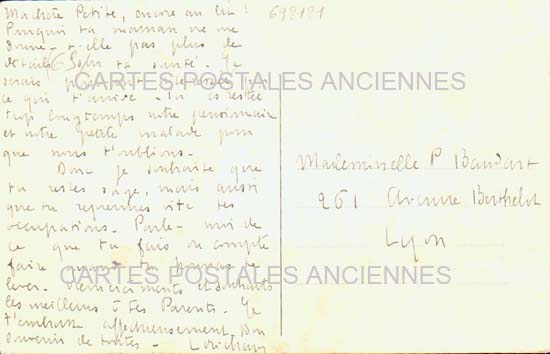 Ma chère Petite, encore au lit !
Pourquoi ta maman ne me
donne-t-elle pas plus de
détails sur ta santé. Je
ce qui t'arrive. Tu es restée
trop longtemps notre pensionnaire
et notre petite malade pour
que nous t'oublions.
Donc je souhaite que
tu restes sage, mais aussi
que tu reprennes vite tes
occupations. Parle-moi de
ce que tu fais ou compte
faire quand tu pourras te
lever. Remerciements et souhaits
les meilleurs à tes Parents. Je
t'embrasse affectueusement. Bon
souvenir de toutes -
698181
Mademoiselle P. Baudart
261 Avenue Berthelot
Lyon
CARTES POSTALES ANCIENNES
CARTES POSTALES ANCIENNES